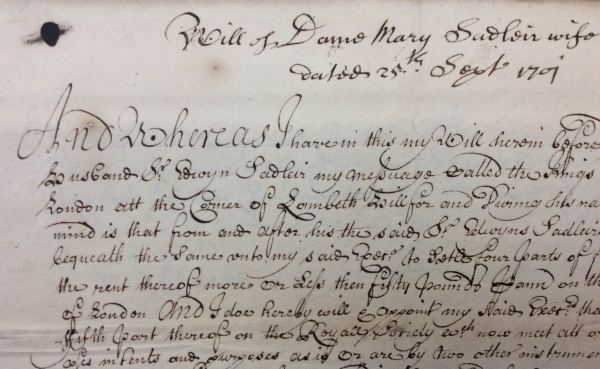 Will of Dame Mary Sadleir wife
dated 25th Sept 1701
And Whereas I have in this my Will herein before
Husband Sr. Edwyn Sadleir my messuage called the Kings
London att the Corner of Lambeth Hill for and During his na
mind is that from and after his the said Sr. Edwyns Sadleir
bequeath the same unto my said Exec.r to hold four parts of f
the rent thereof more or Less then fifty pounds p ann on th
of London And I doe hereby will & appoint my said Exec.r tha
fifth part thereof on the Royall Society wch. now meet att
intents and purposes as is or are by two other instrumen